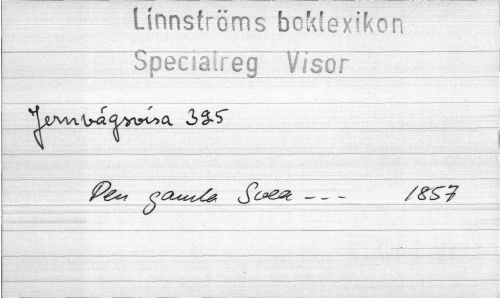 Linnströms boklexikon
Specialreg Visor
Jernvágsvisa 395
Den gamla Svea --- 1857